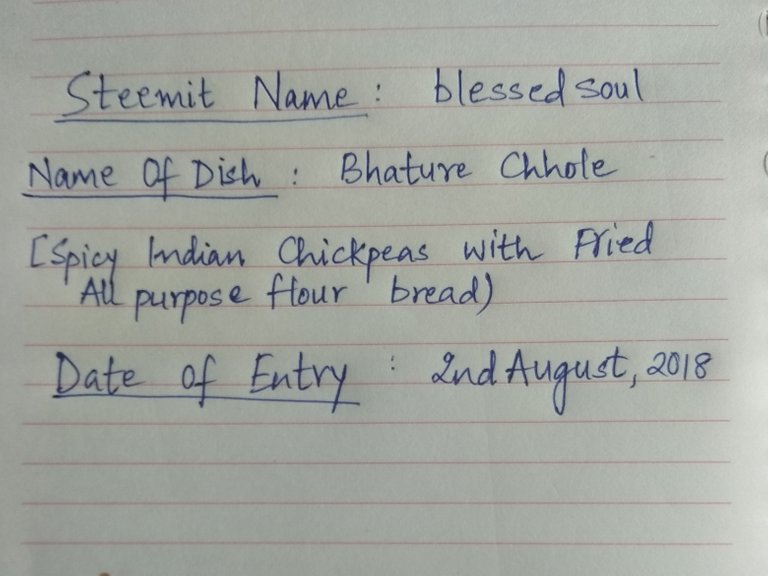 Steemit Name : blessed soul
Name Of Dish : Bhature Chhole
[Spicy Indian Chickpeas with Fried
All purpose flour bread)
Date of Entry : 2nd August, 2018